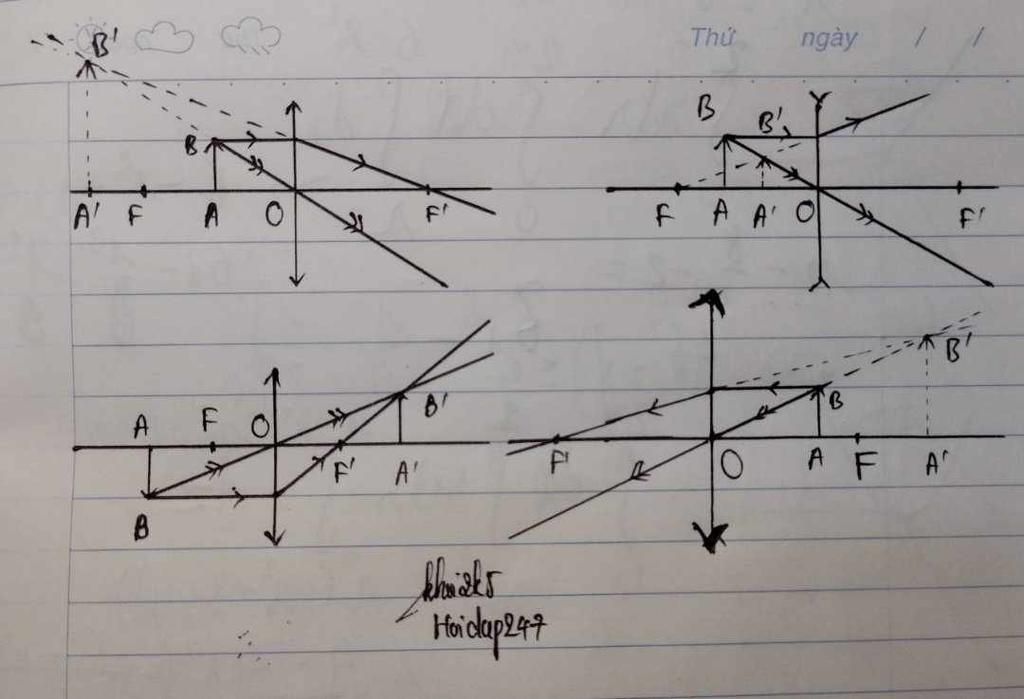 Thứ ngày / /
B'
B
A' F A O F'
B B'
F A A' O F'
A F O B'
F' A'
B
B'
B
F' O A F A'
khai2k5
Hoidap247